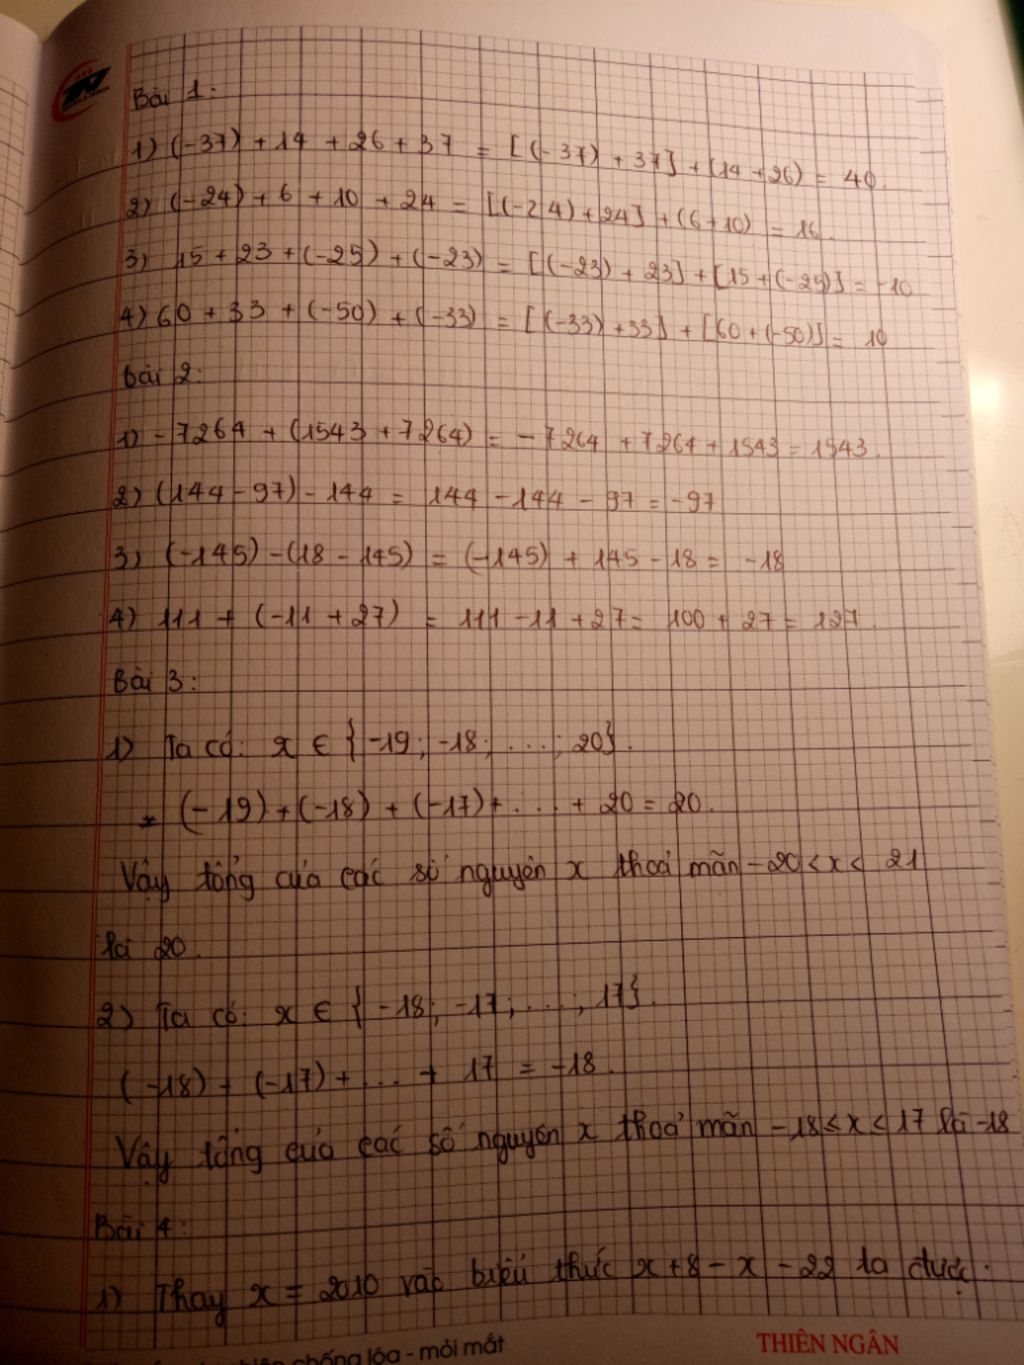 Bài 1:
1) (-37) + 14 + 26 + 37 = [(-37) + 37] + (14 + 26) = 40.
2) (-24) + 6 + 10 + 24 = [(-24) + 24] + (6 + 10) = 16.
3) 15 + 23 + (-25) + (-23) = [(-23) + 23] + [15 + (-25)] = -10
4) 60 + 33 + (-50) + (-33) = [(-33) + 33] + [60 + (-50)] = 10
bài 2:
1) -7264 + (1543 + 7264) = -7264 + 7264 + 1543 = 1543.
2) (144 - 97) - 144 = 144 - 144 - 97 = -97
3) (-145) - (18 - 145) = (-145) + 145 - 18 = -18
4) 111 + (-11 + 27) = 111 - 11 + 27 = 100 + 27 = 127.
Bài 3:
1) Ta có: x ∈ {-19; -18; ...; 20}.
* (-19) + (-18) + (-17) + ... + 20 = 20.
Vậy tổng của các số nguyên x thoả mãn -20 < x < 21
là 20.
2) Ta có: x ∈ {-18; -17; ...; 17}.
(-18) + (-17) + ... + 17 = -18.
Vậy tổng của các số nguyên x thoả mãn -18 ≤ x ≤ 17 là -18
Bài 4:
1) Thay x = 2010 vào biểu thức x + 8 - x - 22 ta được:
chống lóa - mỏi mắt
THIÊN NGÂN